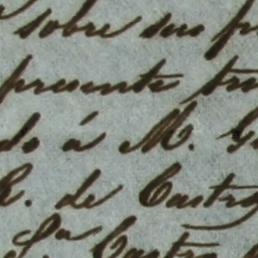 sobre su
presente
do á M. G
R. de Castro
Sª Castro